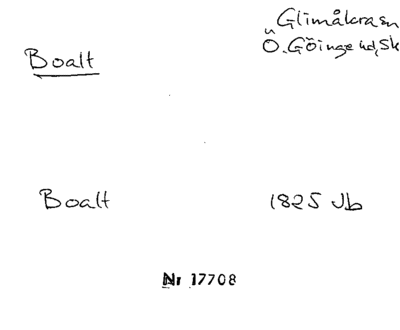 Glimåkra sn
Ö. Göinge hd, Sk
Boalt
Boalt 1825 Jb
Nr 17708